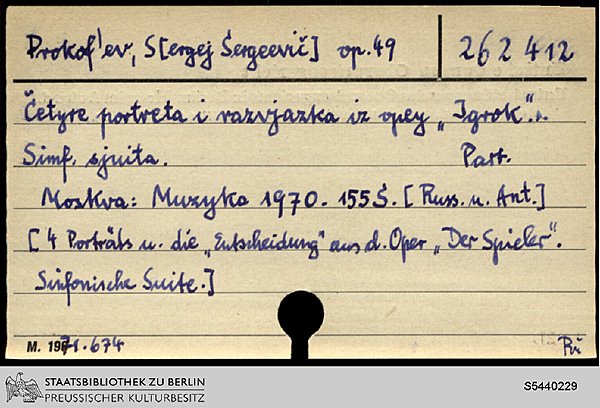 Prokof'ev, S[ergej Sergeevič] op. 49 262 412
Četyre portreta i razvjazka iz opery „Igrok".
Simf. sjuita. Part.
Moskva: Muzyka 1970. 155 S. [Russ. u. Ant.]
[4 Porträts u. die „Entscheidung" aus d. Oper „Der Spieler".
Sinfonische Suite.]
M. 1971.674 Rü
STAATSBIBLIOTHEK ZU BERLIN
PREUSSISCHER KULTURBESITZ
S5440229